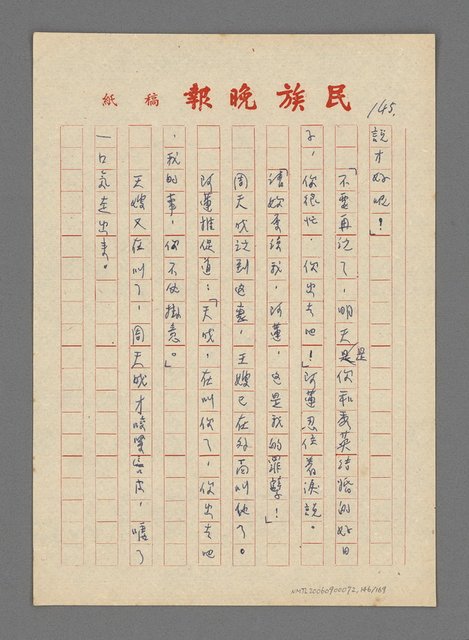 民族晚報 稿紙
145.
說才好呢！」
「不要再說了，明天是你和美英結婚的好日
子，你很忙，你出去吧！」阿蓮忍住着淚說。
「請妳原諒我，阿蓮，這是我的罪孽！」
周天成說到這裏，王嫂已在外面叫他了。
阿蓮推促道：「天成，在叫你了，你出去吧
，我的事，你不使掛意。」
王嫂又在叫了，周天成才咬緊唇皮，嘘了
一口氣走出来。
NMTL20060900072, 146/169